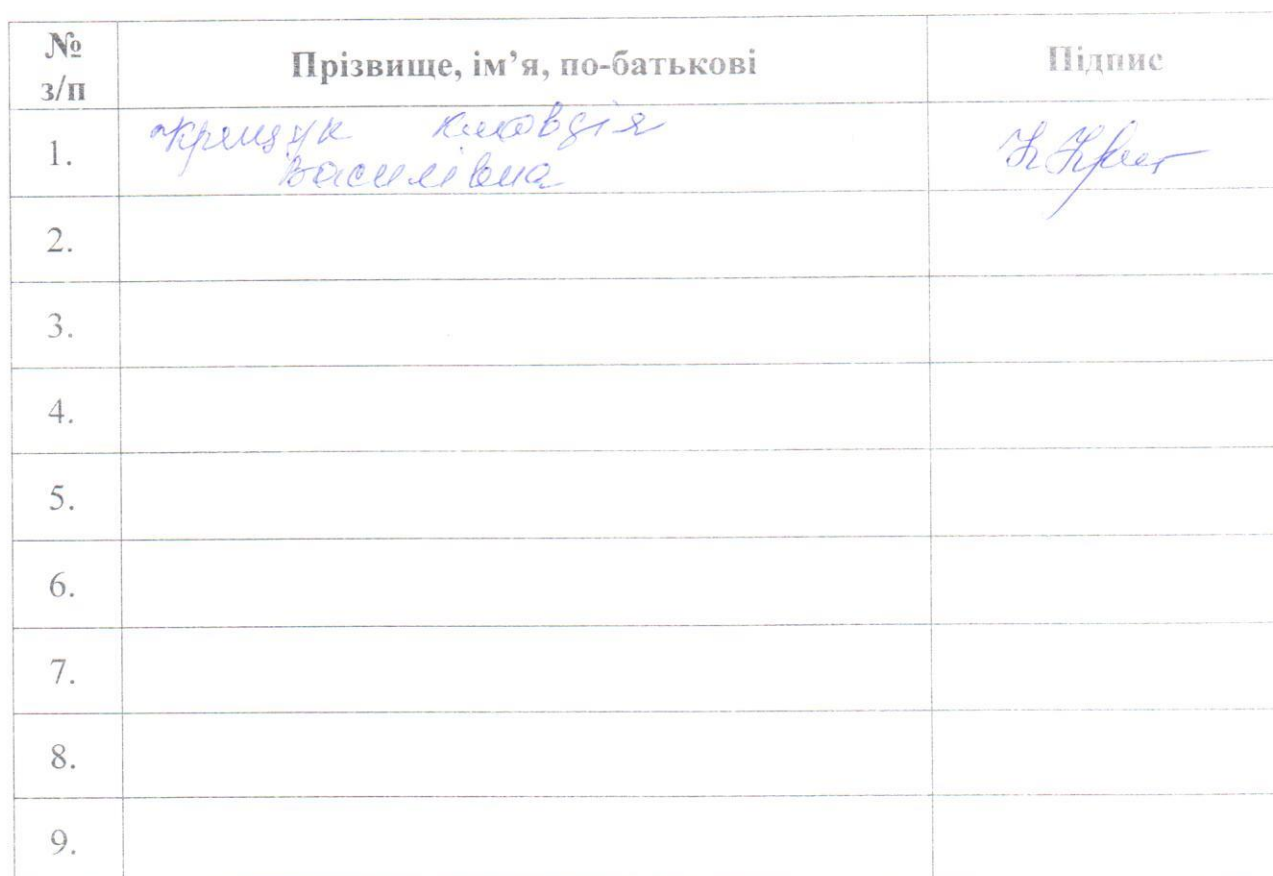 № з/п Прізвище, ім’я, по-батькові Підпис
1. Крищук Клавдія
Василівна
2.
3.
4.
5.
6.
7.
8.
9.